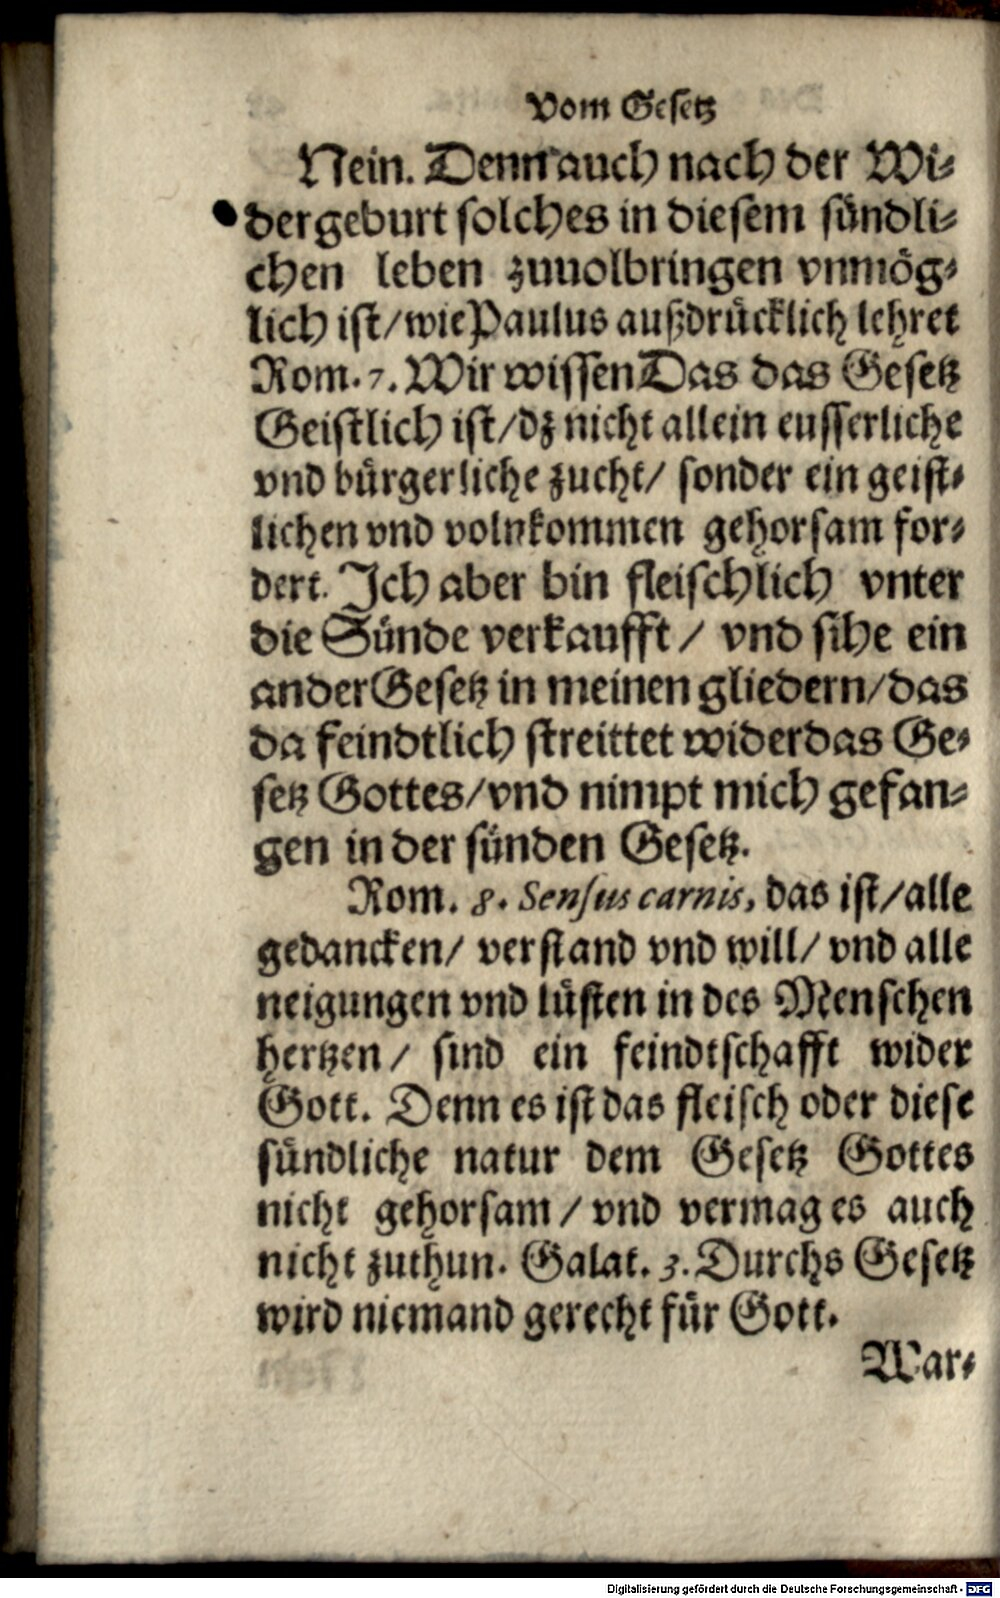 Vom Gesetz
Nein. Denn auch nach der Wi⸗
dergeburt solches in diesem sündli⸗
chen leben zuuolbringen vnmög⸗
lich ist/wie Paulus außdrücklich lehret
Rom. 7. Wir wissen Das das Gesetz
Geistlich ist/dz nicht allein eusserliche
vnd bürgerliche zucht/ sonder ein geist⸗
lichen vnd volnkommen gehorsam for⸗
dert. Ich aber bin fleischlich vnter
die Sünde verkaufft/ vnd sihe ein
ander Gesetz in meinen gliedern/das
da feindtlich streittet wider das Ge⸗
setz Gottes/vnd nimpt mich gefan⸗
gen in der sünden Gesetz.
Rom. 8. Sensus carnis, das ist/alle
gedancken/ verstand vnd will/ vnd alle
neigungen vnd lüsten in des Menschen
hertzen/ sind ein feindtschafft wider
Gott. Denn es ist das fleisch oder diese
sündliche natur dem Gesetz Gottes
nicht gehorsam/ vnd vermag es auch
nicht zuthun. Galat. 3. Durchs Gesetz
wird niemand gerecht für Gott.
War⸗
Digitalisierung gefördert durch die Deutsche Forschungsgemeinschaft - DFG